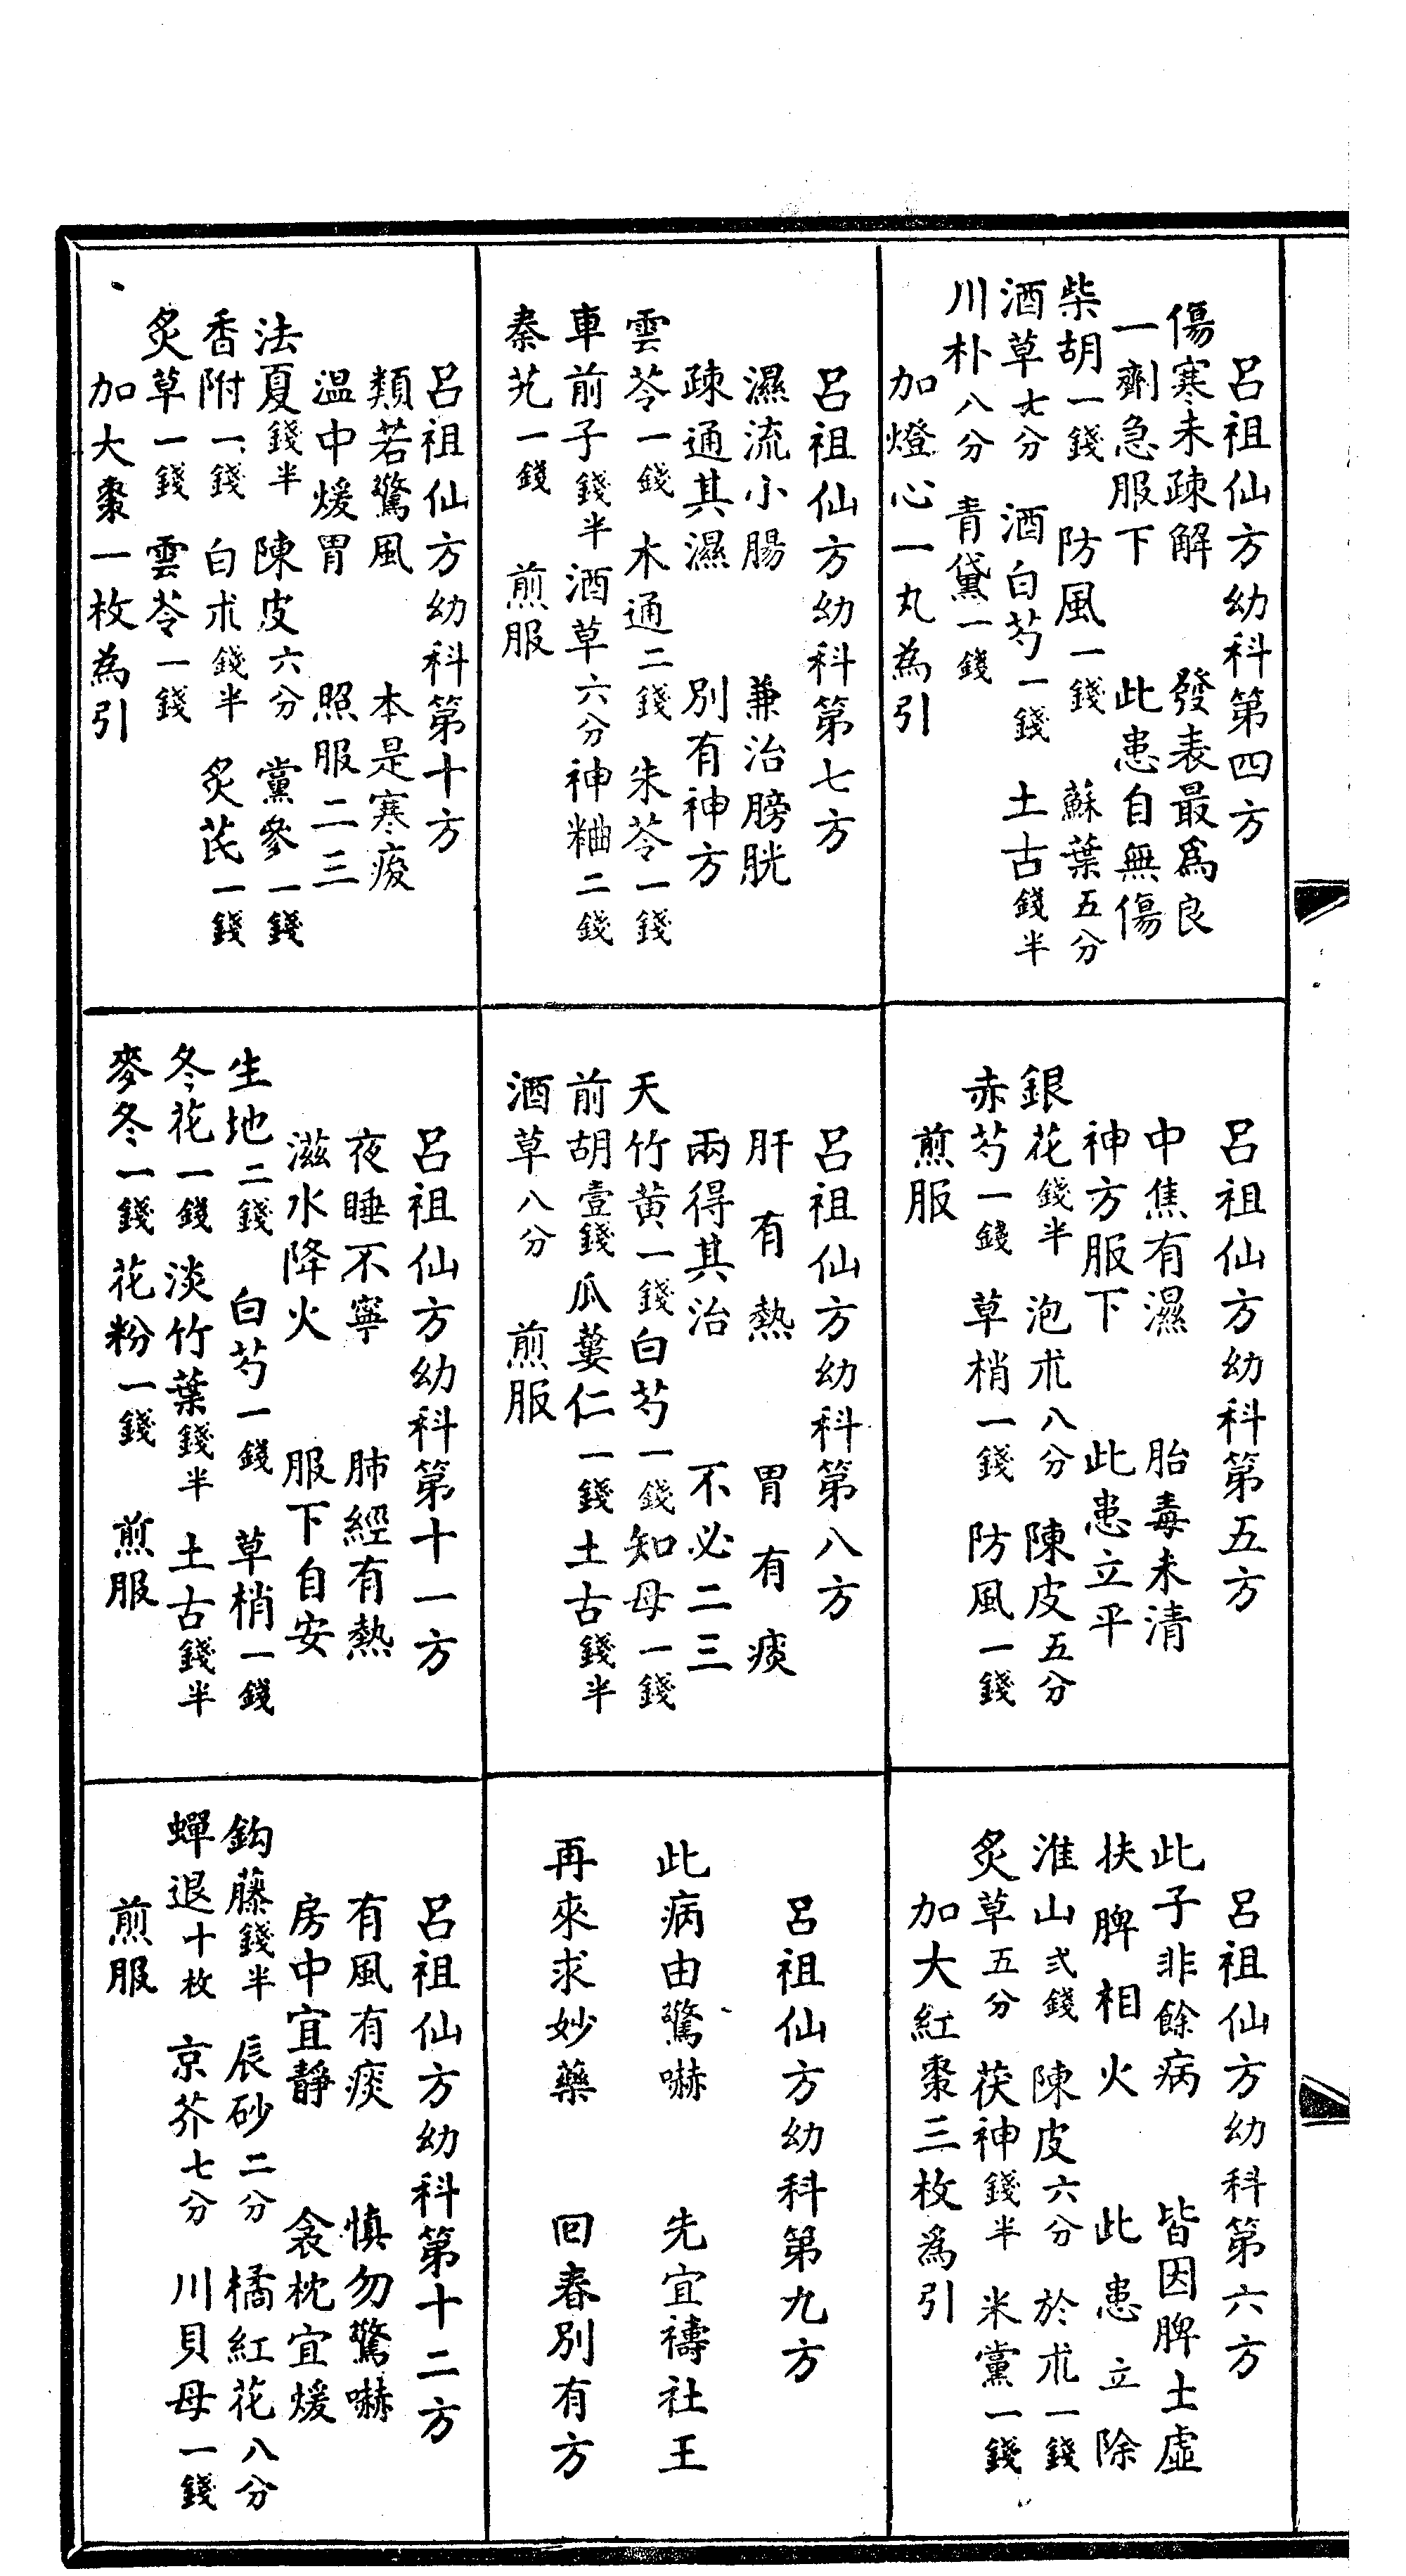 呂祖仙方幼科第四方
傷寒未疎解　發表最爲良
一劑急服下　此患自無傷
柴胡一錢　防風一錢　蘇葉五分
酒草七分　酒白芍一錢　土古錢半
川朴八分　青黛一錢
加燈心一丸為引
呂祖仙方幼科第五方
中焦有濕　胎毒未清
神方服下　此患立平
銀花錢半　泡朮八分　陳皮五分
赤芍一錢　草梢一錢　防風一錢
煎服
呂祖仙方幼科第六方
此子非餘病　皆因脾土虛
扶脾相火　此患立除
淮山弍錢　陳皮六分　於朮一錢
炙草五分　茯神錢半　米黨一錢
加大紅棗三枚為引
呂祖仙方幼科第七方
濕流小腸　兼治膀胱
疎通其濕　別有神方
雲苓一錢　木通二錢　朱苓一錢
車前子錢半　酒草六分　神粬二錢
秦艽一錢　煎服
呂祖仙方幼科第八方
肝有熱　胃有痰
兩得其治　不必二三
天竹黃一錢　白芍一錢　知母一錢
前胡壹錢　瓜蔞仁一錢　土古錢半
酒草八分　煎服
呂祖仙方幼科第九方
此病由驚嚇　先宜禱社王
再來求妙藥　回春別有方
呂祖仙方幼科第十方
類若驚風　本是寒痰
温中煖胃　照服二三
法夏錢半　陳皮六分　黨參一錢
香附一錢　白朮錢半　炙芪一錢
炙草一錢　雲苓一錢
加大棗一枚為引
呂祖仙方幼科第十一方
夜睡不寧　肺經有熱
滋水降火　服下自安
生地二錢　白芍一錢　草梢一錢
冬花一錢　淡竹葉錢半　土古錢半
麥冬一錢　花粉一錢　煎服
呂祖仙方幼科第十二方
有風有痰　慎勿驚嚇
房中宜靜　衾枕宜煖
鈎藤錢半　辰砂二分　橘紅花八分
蟬退十枚　京芥七分　川貝母一錢
煎服